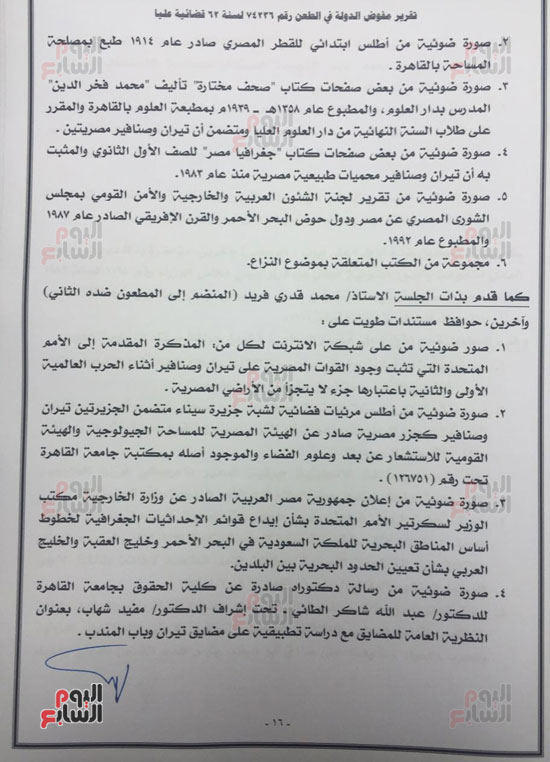 تقرير مفوض الدولة في الطعن رقم ٧٤٢٣٦ لسنة ٦٢ قضائية عليا
٢. صورة ضوئية من أطلس ابتدائي للقطر المصري صادر عام ١٩١٤ طبع بمصلحة
المساحة بالقاهرة .
٣. صورة ضوئية من بعض صفحات كتاب "صحف مختارة" تأليف "محمد فخر الدين"
المدرس بدار العلوم، والمطبوع عام ١٣٥٨هـ ـ ١٩٣٩م بمطبعة العلوم بالقاهرة والمقرر
على طلاب السنة النهائية من دار العلوم العليا ومتضمن أن تيران وصنافير مصريتين .
٤. صورة ضوئية من بعض صفحات كتاب "جغرافيا مصر" للصف الأول الثانوي والمثبت
به أن تيران وصنافير محميات طبيعية مصرية منذ عام ١٩٨٣.
٥. صورة ضوئية من تقرير لجنة الشئون العربية والخارجية والأمن القومي بمجلس
الشورى المصري عن مصر ودول حوض البحر الأحمر والقرن الإفريقي الصادر عام ١٩٨٧
والمطبوع عام ١٩٩٢.
٦. مجموعة من الكتب المتعلقة بموضوع النزاع.
كما قدم بذات الجلسة الاستاذ/ محمد قدري فريد (المنضم إلى المطعون ضده الثاني)
وآخرين، حوافظ مستندات طويت على :
١. صور ضوئية من على شبكة الانترنت لكل من: المذكرة المقدمة إلى الأمم
المتحدة التي تثبت وجود القوات المصرية على تيران وصنافير أثناء الحرب العالمية
الأولى والثانية باعتبارها جزء لا يتجزأ من الأراضي المصرية .
٢. صورة ضوئية من أطلس مرئيات فضائية لشبة جزيرة سيناء متضمن الجزيرتين تيران
وصنافير كجزر مصرية صادر عن الهيئة المصرية للمساحة الجيولوجية والهيئة
القومية للاستشعار عن بعد وعلوم الفضاء والموجود أصله بمكتبة جامعة القاهرة
تحت رقم (١٢٦٧٥١) .
٣. صورة ضوئية من إعلان جمهورية مصر العربية الصادر عن وزارة الخارجية مكتب
الوزير لسكرتير الأمم المتحدة بشأن إيداع قوائم الإحداثيات الجغرافية لخطوط
أساس المناطق البحرية للملكة السعودية في البحر الأحمر وخليج العقبة والخليج
العربي بشأن تعيين الحدود البحرية بين البلدين.
٤. صورة ضوئية من رسالة دكتوراه صادرة عن كلية الحقوق بجامعة القاهرة
للدكتور/ عبد الله شاكر الطائي ـ تحت إشراف الدكتور/ مفيد شهاب، بعنوان
النظرية العامة للمضايق مع دراسة تطبيقية على مضايق تيران وباب المندب .
اليوم السابع
- ١٦ -